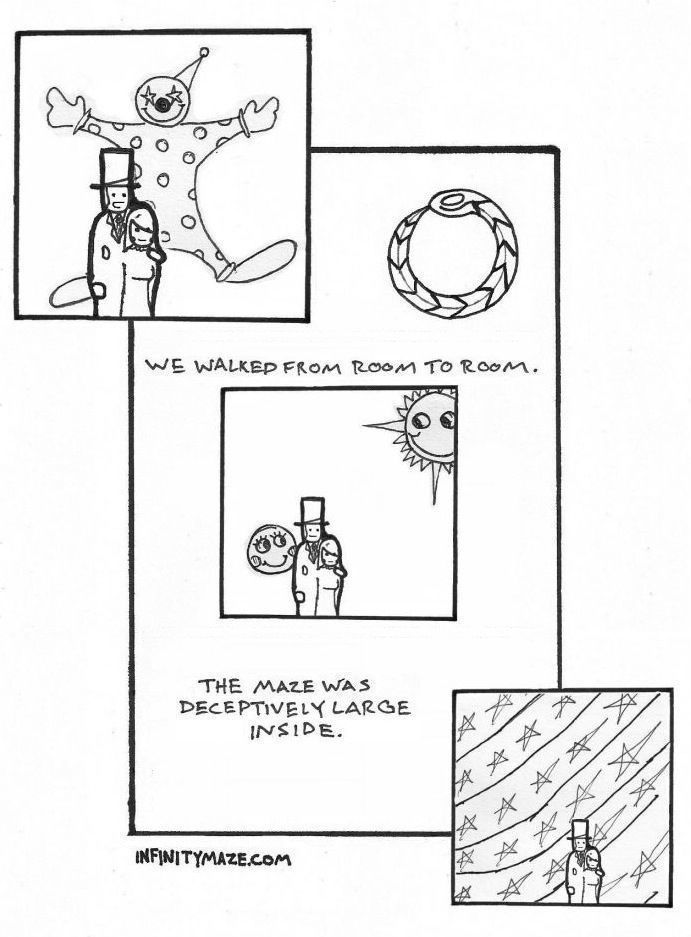 WE WALKED FROM ROOM TO ROOM.
THE MAZE WAS
DECEPTIVELY LARGE
INSIDE.
INFINITYMAZE.COM